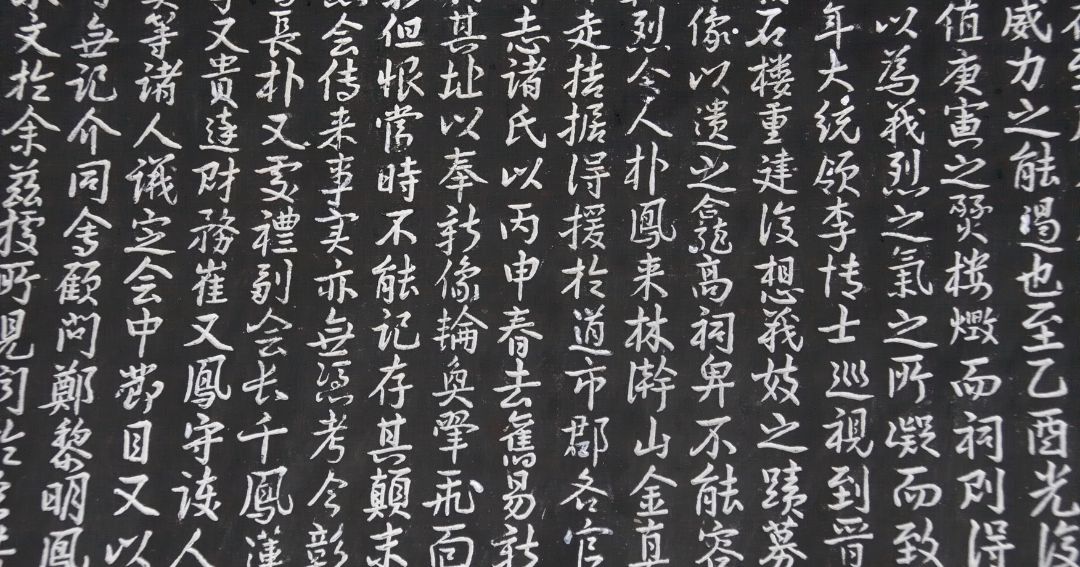 威力之能遏也至乙酉光復
值庚寅之燹楼燬而祠則得
以為義烈之氣之所凝而致
年大統領李情士巡視到晋
石楼重建後想義妓之蹟募
像以遺之龕高祠卑不能容
烈会人朴鳳来林澣山金直
走拮据得援於道市郡各官
志諸氏以丙申春去舊易新
其址以奉新像輪奐翬飛而
但恨當時不能記存其顛末
会傳来事实亦無憑考今彰
長朴又雯禮副会長千鳳蓮
又貴達財務崔又鳳守護人
等諸人議定会中節目又以
無記介同舍顧問鄭黎明鳳
文於余茲據所見聞於